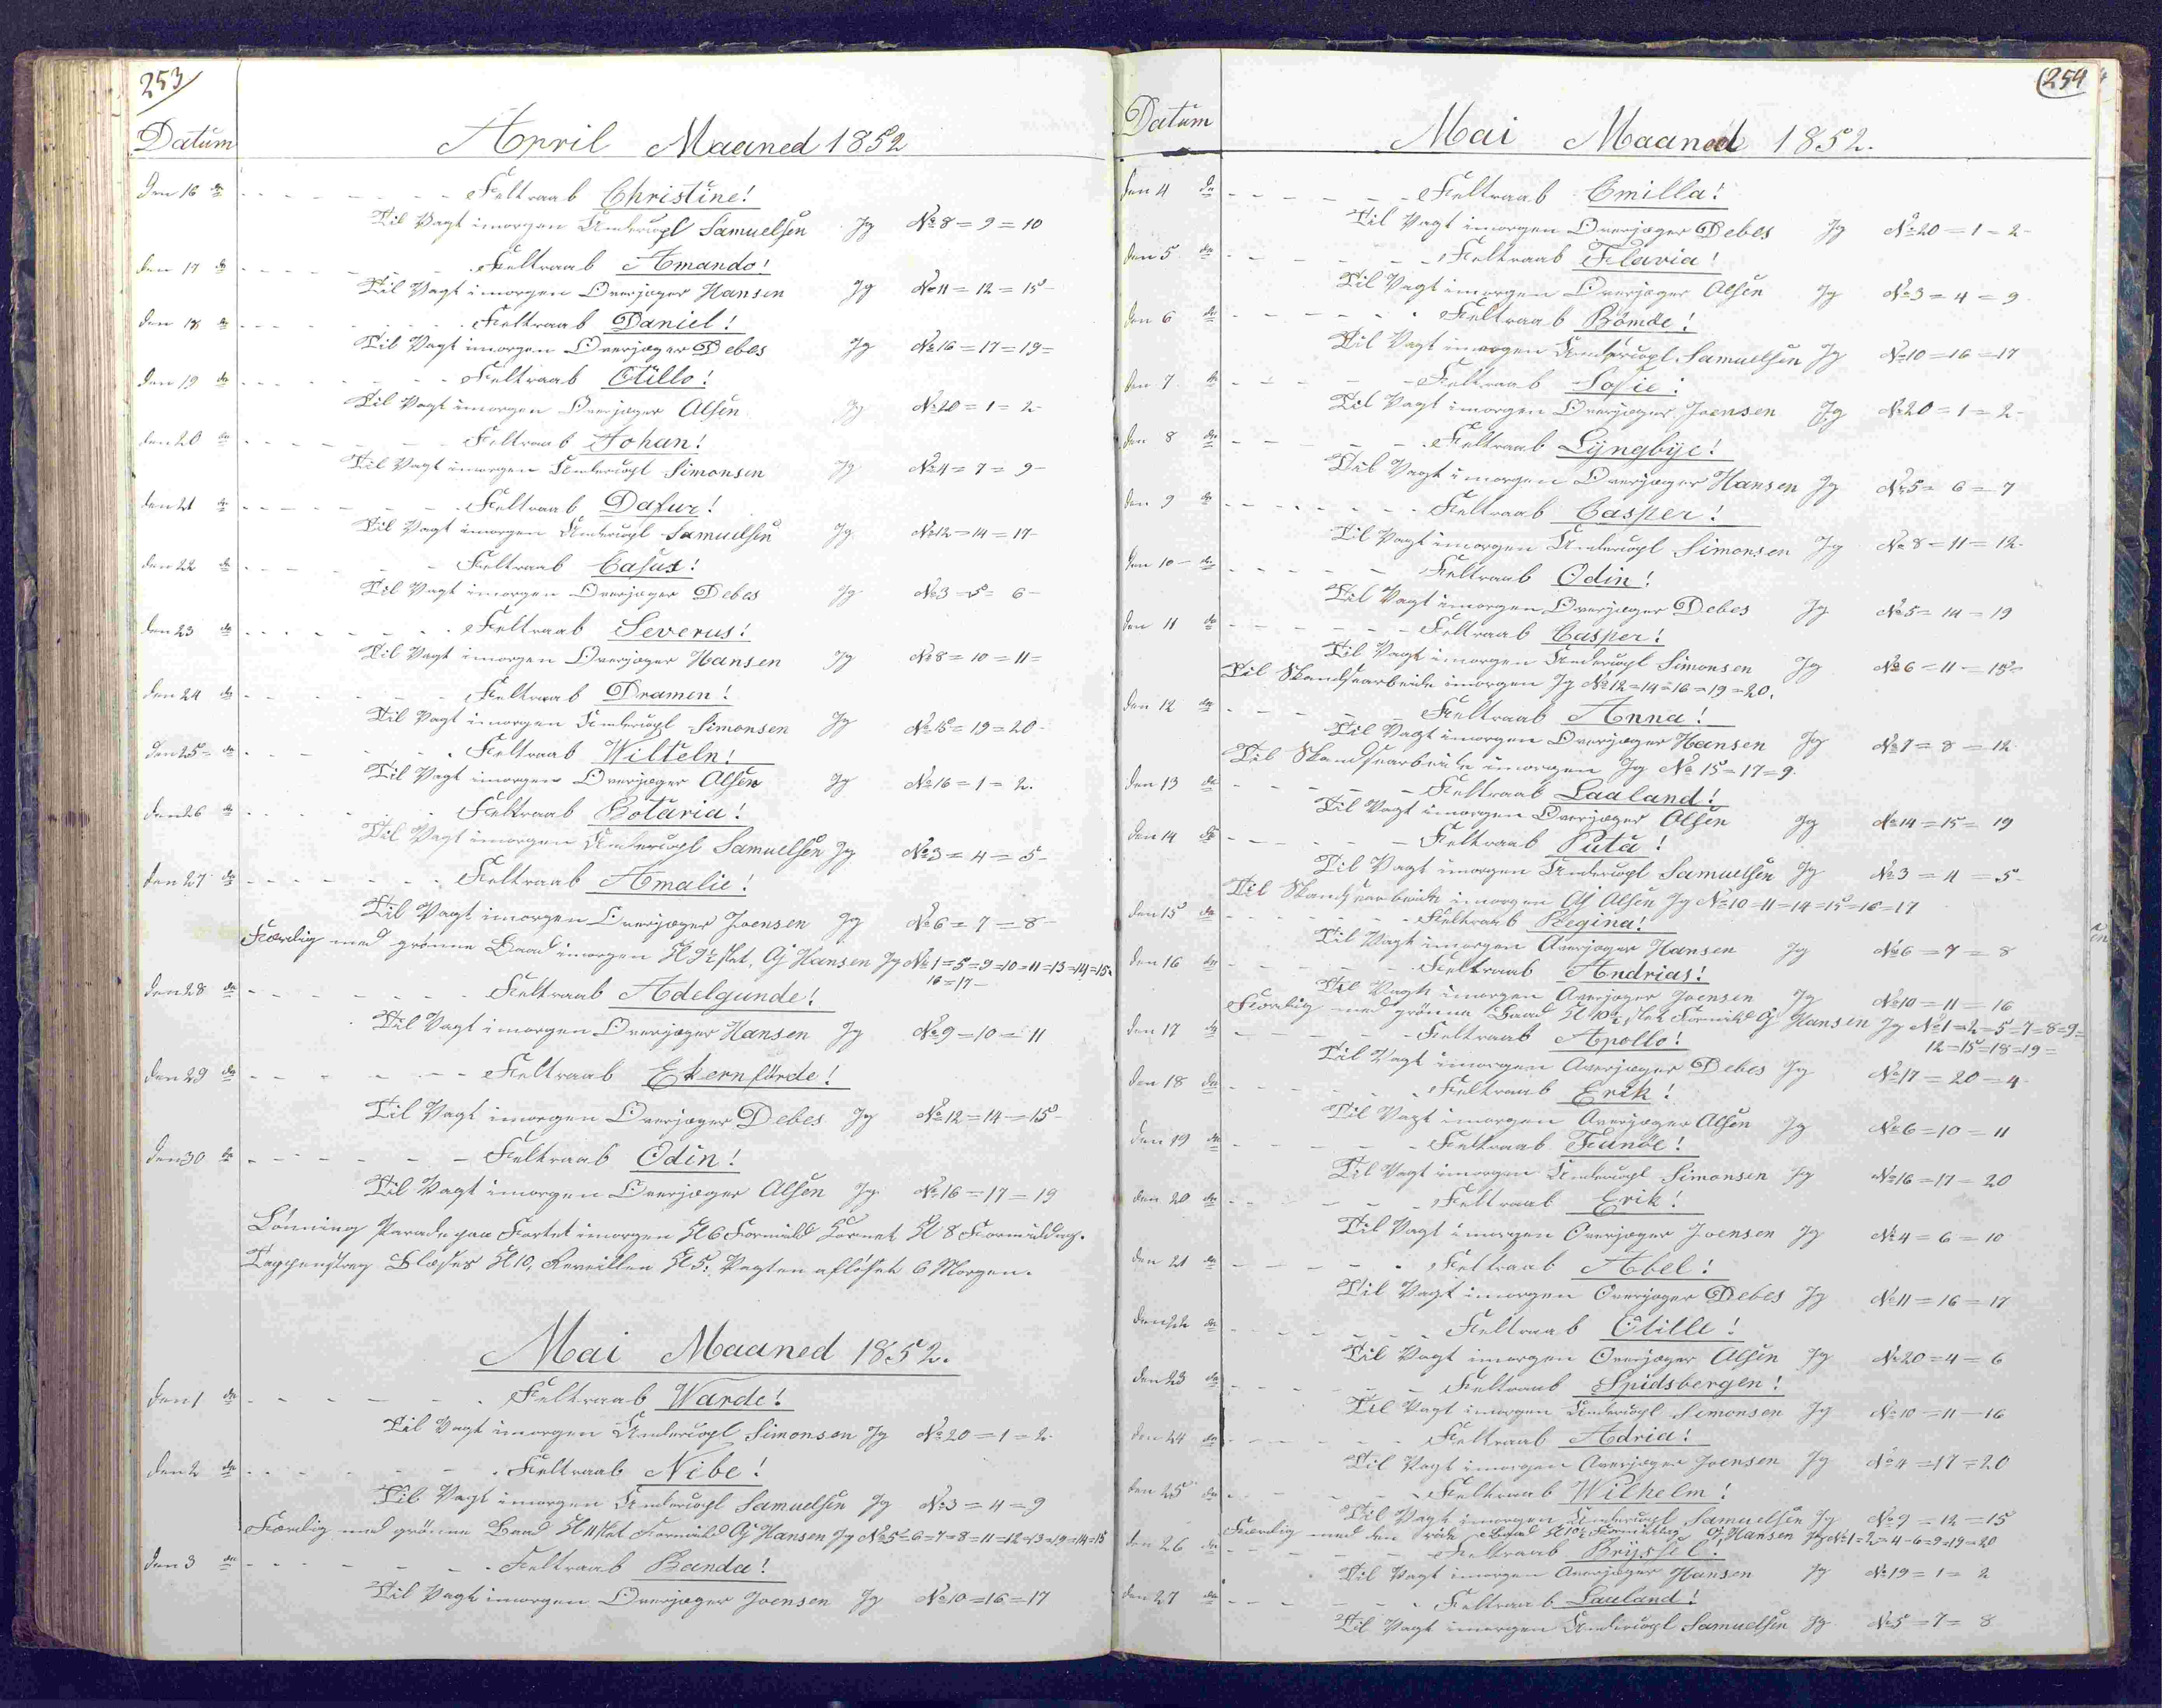 253
Datum
April Maaned 1852
Den 16 de - - - - - - - Feltraab Christine!
Til Vagt imorgen Undercopl Samuelsen Jg № 8 = 9 = 10
den 17 de - - - - - - - Feltraab Amando!
Til Vagt imorgen Overjæger Hansen Jg № 11 = 12 = 15 -
den 18 de - - - - - - - Feltraab Daniel!
Til Vagt imorgen Overjæger Debes Jg № 16 = 17 = 19 =
den 19 de - - - - - - - Feltraab Otillo!
Til Vagt imorgen Overjæger Olsen Jg № 20 = 1 = 2 -
den 20 de - - - - - - - Feltraab Johan!
Til Vagt imorgen Undercopl Simonsen Jg № 4 = 7 = 9 -
den 21 de - - - - - - - Feltraab Dafur!
Til Vagt imorgen Undercopl Samuelsen Jg № 12 = 14 = 17 -
den 22 de - - - - - - - Feltraab Casus!
Til Vagt imorgen Overjæger Debes Jg № 3 = 5 = 6 -
den 23 de - - - - - - - Feltraab Severus!
Til Vagt imorgen Overjæger Hansen Jg № 8 = 10 = 11 =
den 24 de - - - - - - - Feltraab Dramen!
Til Vagt imorgen Undercopl Simonsen Jg № 15 = 19 = 20 -
den 25 de - - - - - - - Feltraab Wilteln!
Til Vagt imorgen Overjæger Olsen Jg № 16 = 1 = 2.
den 26 de - - - - - - - Feltraab Botaria!
Til Vagt imorgen Undercopl Samuelsen Jg № 3 = 4 = 5 -
den 27 de - - - - - - - Feltraab Amalie!
Til Vagt imorgen Overjæger Joensen Jg № 6 = 7 = 8 -
Færdig med grønne Baad imorgen Kl 9½ slet, Oj Hansen Jg № 1 = 5 = 9 = 10 = 11 = 13 = 14 = 15 =
16 = 17 -
den 28 de - - - - - - - Feltraab Adelgunde!
Til Vagt imorgen Overjæger Hansen Jg № 9 = 10 = 11
den 29 de - - - - - - - Feltraab Ekernförde!
Til Vagt imorgen Overjæger Debes Jg № 12 = 14 = 15 -
den 30 de - - - - - - - Feltraab Odin!
Til Vagt imorgen Overjæger Olsen Jg № 16 = 17 = 19
Lønning Parade paa Fortet imorgen Kl 6 Formidd Kornet Kl 8 Formiddag.
Tappenstreg Blæses Kl 10, Reveillen Kl 5. Vagten afløses 6 Morgen.
Mai Maaned 1852.
den 1 de - - - - - - - Feltraab Warde!
Til Vagt imorgen Undercopl Simonsen Jg № 20 = 1 = 2 -
den 2 de - - - - - - - Feltraab Nibe!
Til Vagt imorgen Undercopl Samuelsen Jg № 3 = 4 = 9
Færdig med grønne Baad Kl 11 slet Formidd Oj Hansen Jg № 5 = 6 = 7 = 8 = 11 = 12 = 13 = 19 = 14 = 15
den 3 de - - - - - - - Feltraab Banda!
Til Vagt imorgen Overjæger Joensen Jg № 10 = 16 = 17
254
Datum
Mai Maaned 1852.
den 4 de - - - - - - - Feltraab Emilla!
Til Vagt imorgen Overjæger Debes Jg № 20 = 1 = 2 -
den 5 de - - - - - - - Feltraab Flavia!
Til Vagt imorgen Overjæger Olsen Jg № 3 = 4 = 9
den 6 de - - - - - - - Feltraab Bömde!
Til Vagt imorgen Undercopl Samuelsen Jg № 10 = 16 = 17
den 7 de - - - - - - - Feltraab Sofie!
Til Vagt imorgen Overjæger Joensen Jg № 20 = 1 = 2 -
den 8 de - - - - - - - Feltraab Lyngbye!
Til Vagt imorgen Overjæger Hansen Jg № 5 = 6 = 7
den 9 de - - - - - - - Feltraab Casper!
Til Vagt imorgen Undercopl Simonsen Jg № 8 = 11 = 12 -
den 10 de - - - - - - - Feltraab Odin!
Til Vagt imorgen Overjæger Debes Jg № 5 = 14 = 19
den 11 de - - - - - - - Feltraab Casper!
Til Vagt imorgen Undercopl Simonsen Jg № 6 = 11 = 15 =
Til Skandsearbeide imorgen Jg № 12 = 14 = 16 = 19 = 20.
den 12 de - - - - - - - Feltraab Anna!
Til Vagt imorgen Overjæger Hansen Jg № 7 = 8 = 12
Til Skandsearbeide imorgen Jg № 15 = 17 = 9.
den 13 de - - - - - - - Feltraab Laaland!
Til Vagt imorgen Overjæger Olsen Jg № 14 = 15 = 19
den 14 de - - - - - - - Feltraab Puta!
Til Vagt imorgen Undercopl Samuelsen Jg № 3 = 4 = 5 -
Til Skandsearbeide imorgen Oj Olsen Jg № 10 = 11 = 14 = 15 = 16 = 17
den 15 de - - - - - - - Feltraab Regina!
Til Vagt imorgen Overjæger Hansen Jg № 6 = 7 = 8
den 16 de - - - - - - - Feltraab Andrias!
Til Vagt imorgen Overjæger Joensen Jg № 10 = 11 = 16
Færdig med grønne Baad Kl 10½ slet Formidd Oj Hansen Jg № 1 = 2 = 5 = 7 = 8 = 9 =
12 = 15 = 18 = 19 =
den 17 de - - - - - - - Feltraab Apollo!
Til Vagt imorgen Overjæger Debes Jg № 17 = 20 = 4
den 18 de - - - - - - - Feltraab Erik!
Til Vagt imorgen Overjæger Olsen Jg № 6 = 10 = 11
den 19 de - - - - - - - Feltraab Fanöe!
Til Vagt imorgen Undercopl Simonsen Jg № 16 = 17 = 20
den 20 de - - - - - - - Feltraab Erik!
Til Vagt imorgen Overjæger Joensen Jg № 4 = 6 = 10
den 21 de - - - - - - - Feltraab Abel!
Til Vagt imorgen Overjæger Debes Jg № 11 = 16 = 17
den 22 de - - - - - - - Feltraab Otille!
Til Vagt imorgen Overjæger Olsen Jg № 20 = 4 = 6
den 23 de - - - - - - - Feltraab Spidsbergen!
Til Vagt imorgen Undercopl Simonsen Jg № 10 = 11 = 16
den 24 de - - - - - - - Feltraab Adria!
Til Vagt imorgen Overjæger Joensen Jg № 4 = 17 = 20
den 25 de - - - - - - - Feltraab Wilhelm!
Til Vagt imorgen Undercopl Samuelsen Jg № 9 = 12 = 15
Færdig med den røde Baad Kl 10½ Formiddag Oj Hansen Jg № 1 = 2 = 4 = 6 = 9 = 19 = 20
den 26 de - - - - - - - Feltraab Bryssel!
Til Vagt imorgen Overjæger Hansen Jg № 19 = 1 = 2
den 27 de - - - - - - - Feltraab Lauland!
Til Vagt imorgen Undercopl Samuelsen Jg № 5 = 7 = 8